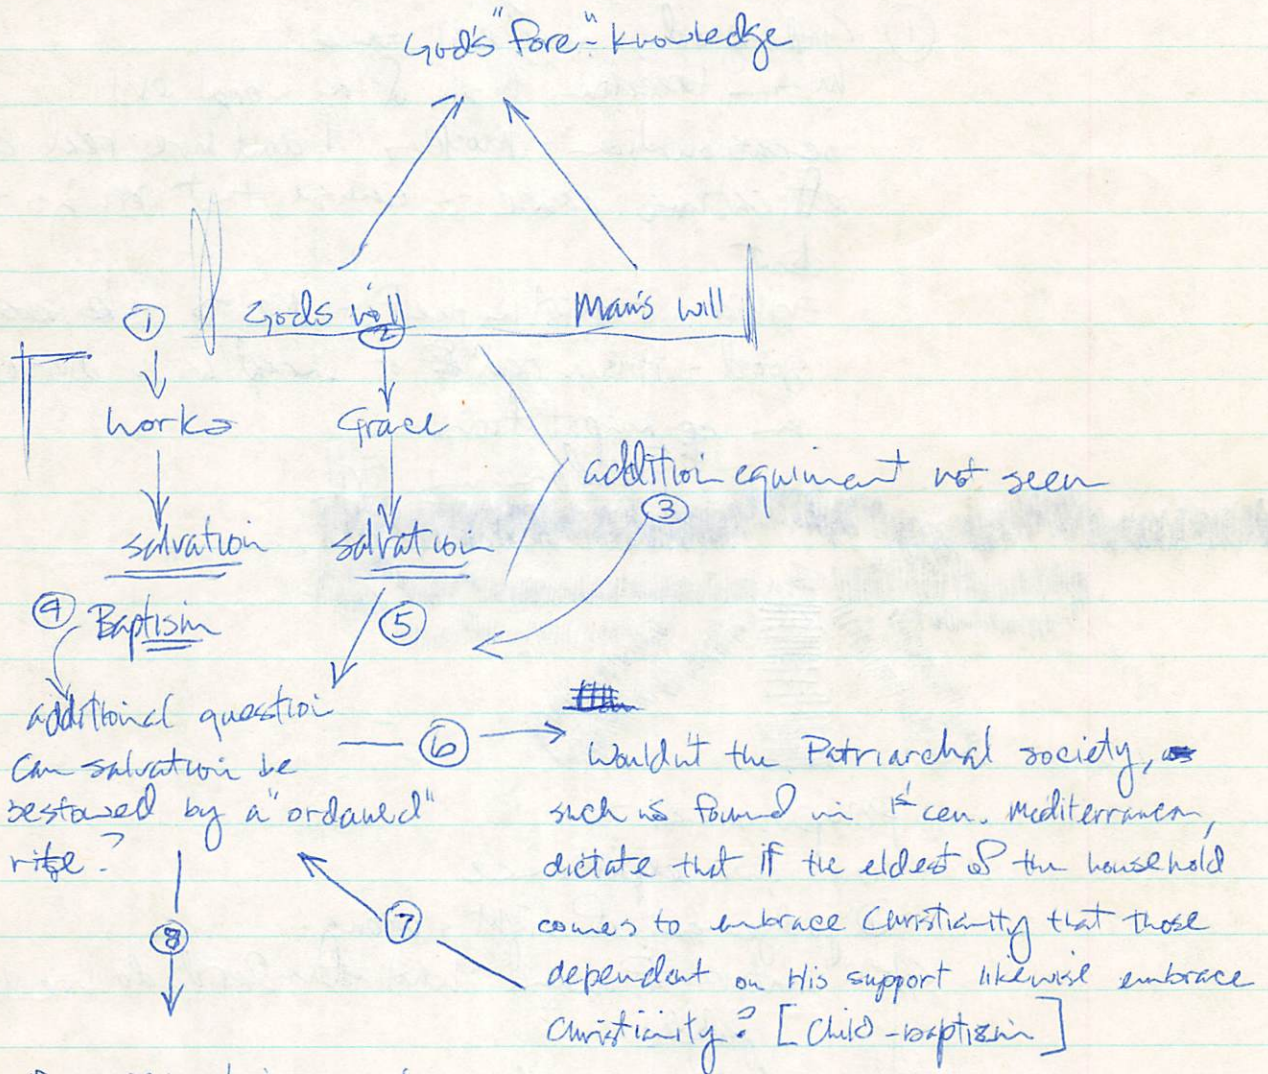 God's "Fore-" knowledge
God's will Man's will
1
2
works Grace
addition equiment not seen
3
salvation salvation
4 Baptism
5
additional question
6
Can salvation be
bestowed by a "ordained"
rite?
Wouldn't the Patriarchal society,
such as found in 1st cen. Mediterranean,
dictate that if the eldest of the household
comes to embrace Christianity that those
dependent on His support likewise embrace
Christianity? [Child-baptism]
7
8